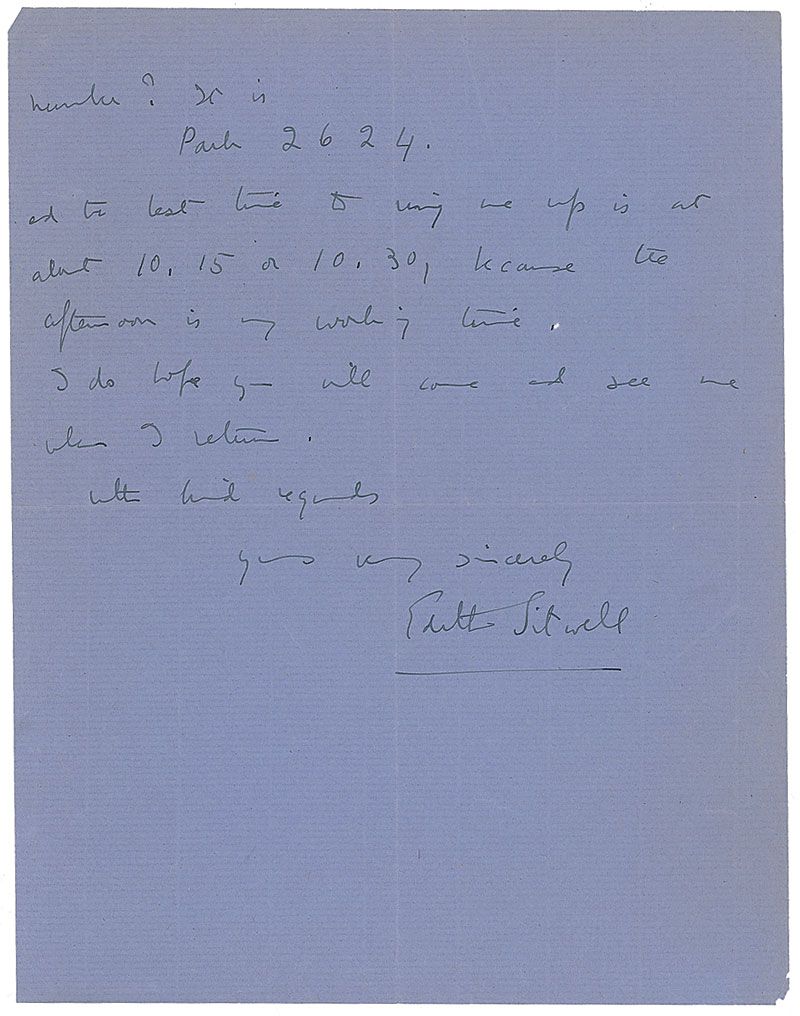 number? It is
Park 2624.
and the best time to ring me up is at
about 10.15 or 10.30, because the
afternoon is my working time.
I do hope you will come and see me
when I return.
With kind regards
yours very sincerely
Edith Sitwell